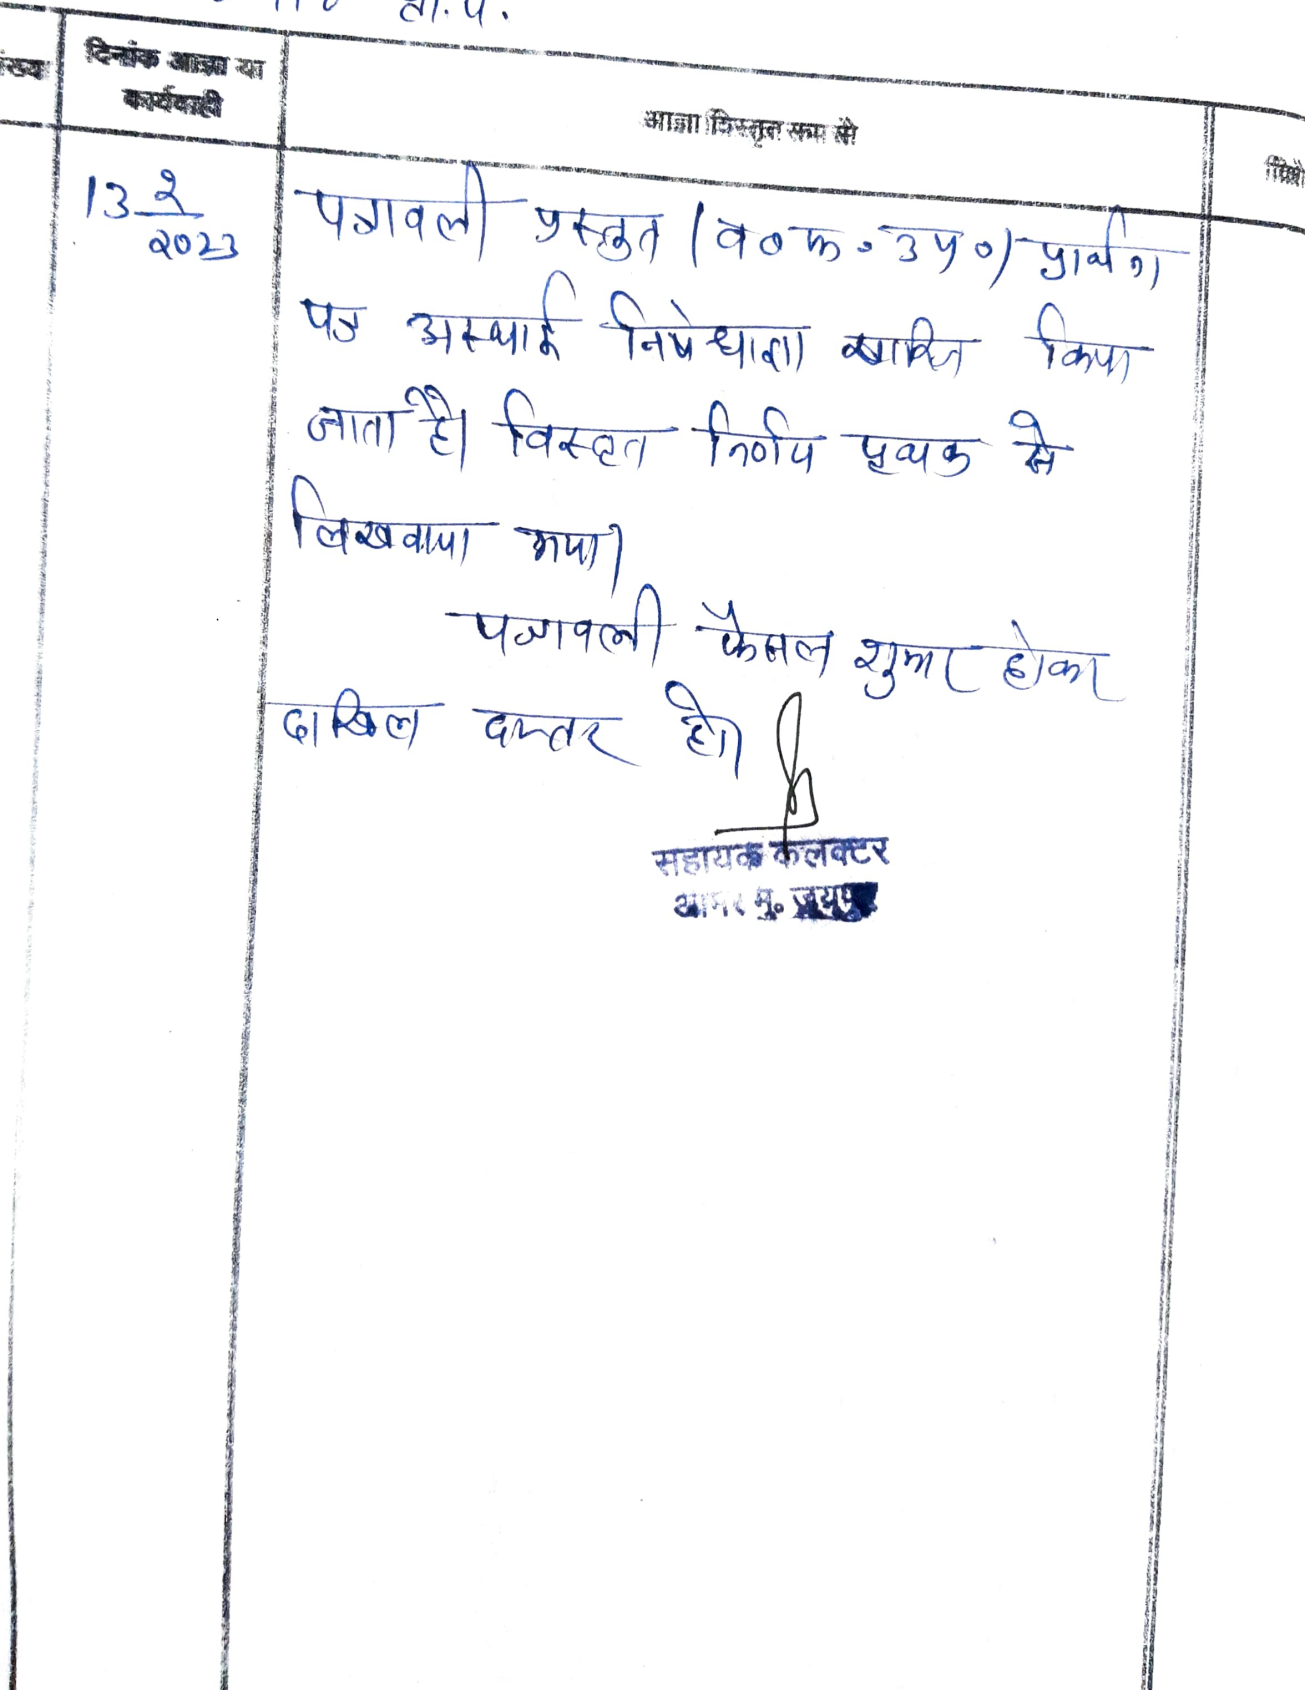 ता.प.
दिनांक आज्ञा या
कार्यवाही
आज्ञा विस्तृत रूप से
13 2/2023
पत्रावली प्रस्तुत (व०फ०उप०) प्रार्थना
पत्र अस्थाई निषेधाज्ञा खारिज किया
जाता है। विस्तृत निर्णय पृथक से
लिखवाया गया।
पत्रावली फैसल शुमार होकर
दाखिल दफ्तर हो।
सहायक कलक्टर
आमेर मु. जयपुर